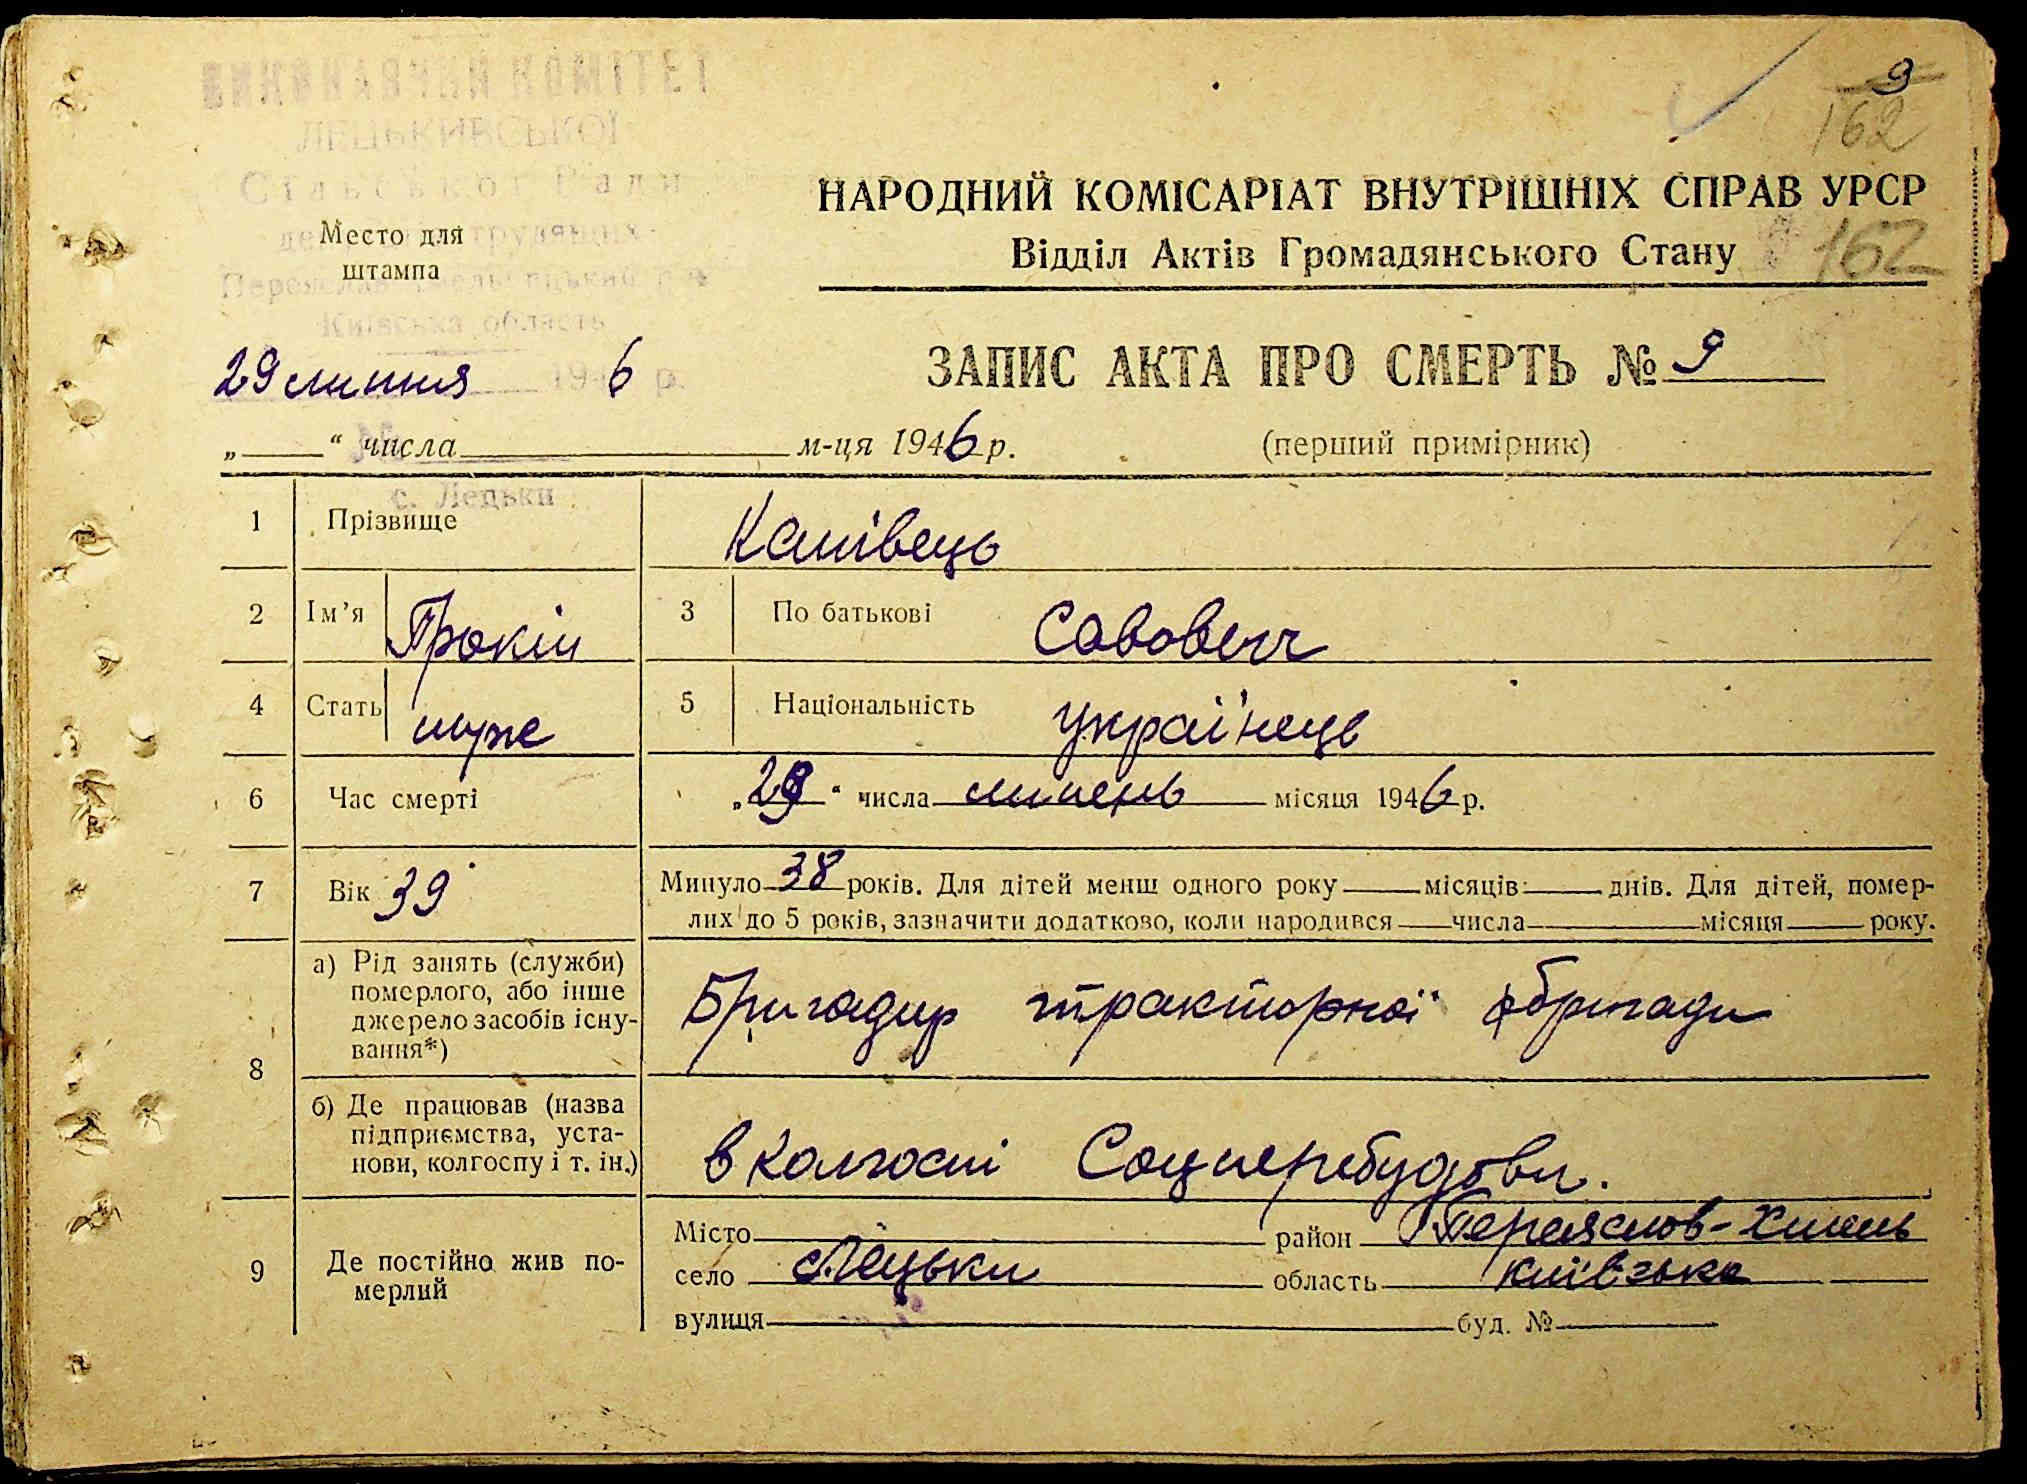 ВИКОНАВЧИЙ КОМІТЕТ
ЛЕЦЬКИВСЬКОЇ
9
162
НАРОДНИЙ КОМІСАРІАТ ВНУТРІШНІХ СПРАВ УРСР
Відділ Актів Громадянського Стану
162
Место для
штампа
трудящих
Київська область
29 липня 1946 р.
ЗАПИС АКТА ПРО СМЕРТЬ № 9
„ “ числа м-ця 1946 р.
(перший примірник)
с. Лецьки
1 Прізвище Канівець
2 Ім’я Прокіп 3 По батькові Савович
4 Стать муже 5 Національність українець
6 Час смерті „29“ числа липень місяця 1946 р.
7 Вік 39 Минуло 38 років. Для дітей менш одного року місяців днів. Для дітей, помер-
лих до 5 років, зазначити додатково, коли народився числа місяця року.
8 а) Рід занять (служби)
померлого, або інше
джерело засобів існу-
вання*)
Бригадир тракторної бригади
б) Де працював (назва
підприємства, уста-
нови, колгоспу і т. ін.)
в колгоспі Соцперебудови.
9 Де постійно жив по-
мерлий
Місто район Переяслов-Хмель
село с.Лецьки область київська
вулиця буд. №